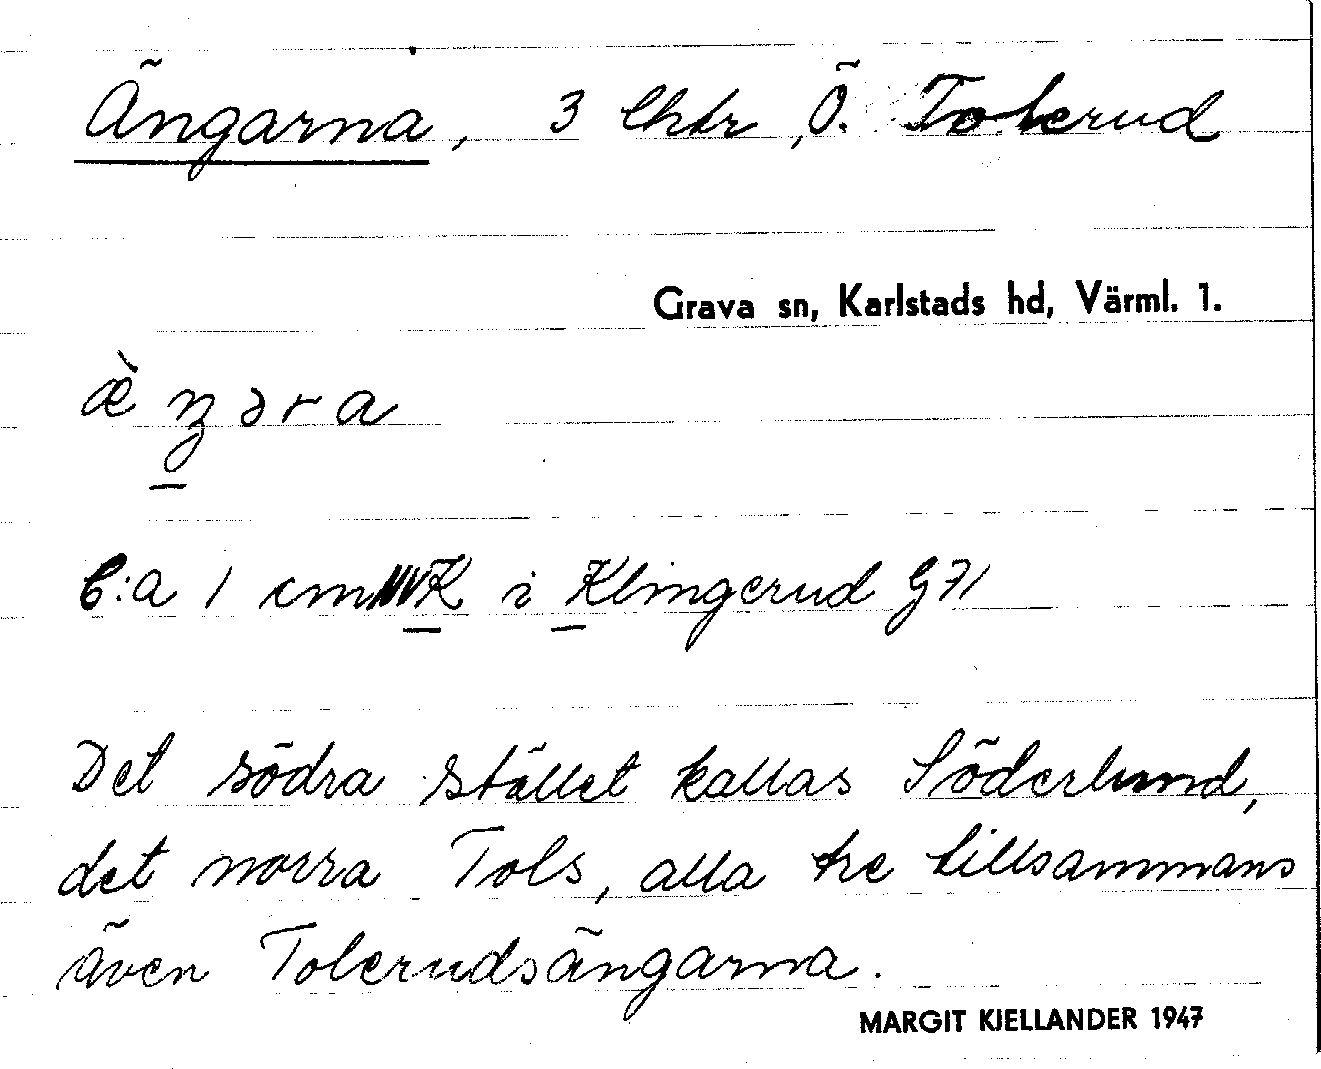 Ängarna, 3 lhtr, Ö. Tolerud
Grava sn, Karlstads hd, Värml. 1.
æ̀ŋəra
C:a 1 cm NVK i Klingerud G71
Det södra stället kallas Söderlund,
det norra Tols, alla tre tillsammans
även Tolerudsängarna.
MARGIT KJELLANDER 1947